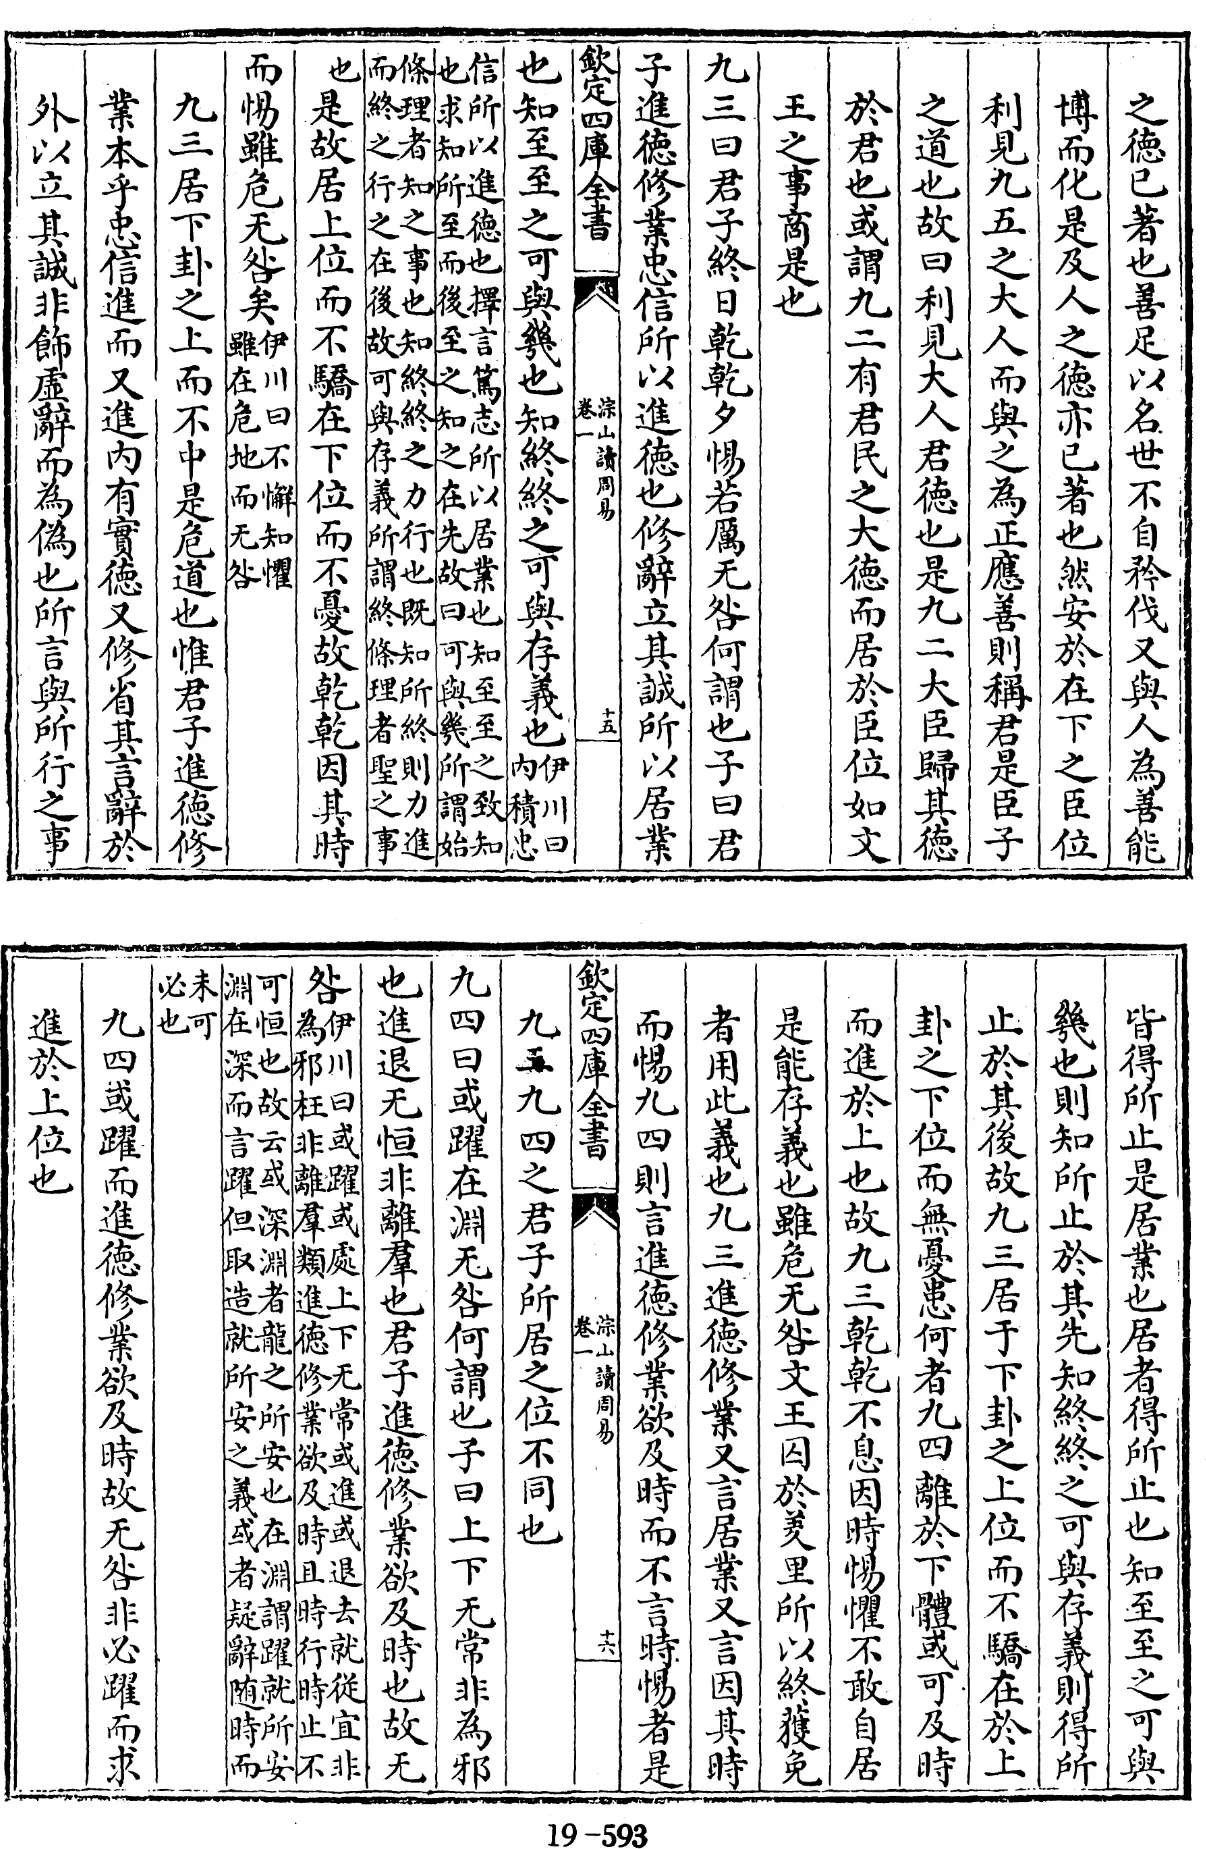 之德已著也善足以名世不自矜伐又與人為善能
博而化是及人之德亦已著也然安於在下之臣位
利見九五之大人而與之為正應善則稱君是臣子
之道也故曰利見大人君德也是九二大臣歸其德
於君也或謂九二有君民之大德而居於臣位如文
王之事商是也
九三曰君子終日乾乾夕惕若厲无咎何謂也子曰君
子進德修業忠信所以進德也修辭立其誠所以居業
欽定四庫全書
淙山讀周易
卷一
十五
也知至至之可與幾也知終終之可與存義也伊川曰內積忠
信所以進德也擇言篤志所以居業也知至至之致知
也求知所至而後至之知之在先故曰可與幾所謂始
條理者知之事也知終終之力行也既知所終則力進
而終之行之在後故可與存義所謂終條理者聖之事
也是故居上位而不驕在下位而不憂故乾乾因其時
而惕雖危无咎矣伊川曰不懈知懼雖在危地而无咎
九三居下卦之上而不中是危道也惟君子進德修
業本乎忠信進而又進內有實德又修省其言辭於
外以立其誠非飾虛辭而為偽也所言與所行之事
皆得所止是居業也居者得所止也知至至之可與
幾也則知所止於其先知終終之可與存義則得所
止於其後故九三居于下卦之上位而不驕在於上
卦之下位而無憂患何者九四離於下體或可及時
而進於上也故九三乾乾不息因時惕懼不敢自居
是能存義也雖危无咎文王囚於羑里所以終獲免
者用此義也九三進德修業又言居業又言因其時
而惕九四則言進德修業欲及時而不言時惕者是
欽定四庫全書
淙山讀周易
卷一
十六
九五九四之君子所居之位不同也
九四曰或躍在淵无咎何謂也子曰上下无常非為邪
也進退无恒非離羣也君子進德修業欲及時也故无
咎伊川曰或躍或處上下无常或進或退去就從宜非
為邪枉非離羣類進德修業欲及時且時行時止不
可恒也故云或深淵者龍之所安也在淵謂躍就所安
淵在深而言躍但取造就所安之義或者疑辭随時而
未可必也
九四或躍而進德修業欲及時故无咎非必躍而求
進於上位也
19-593